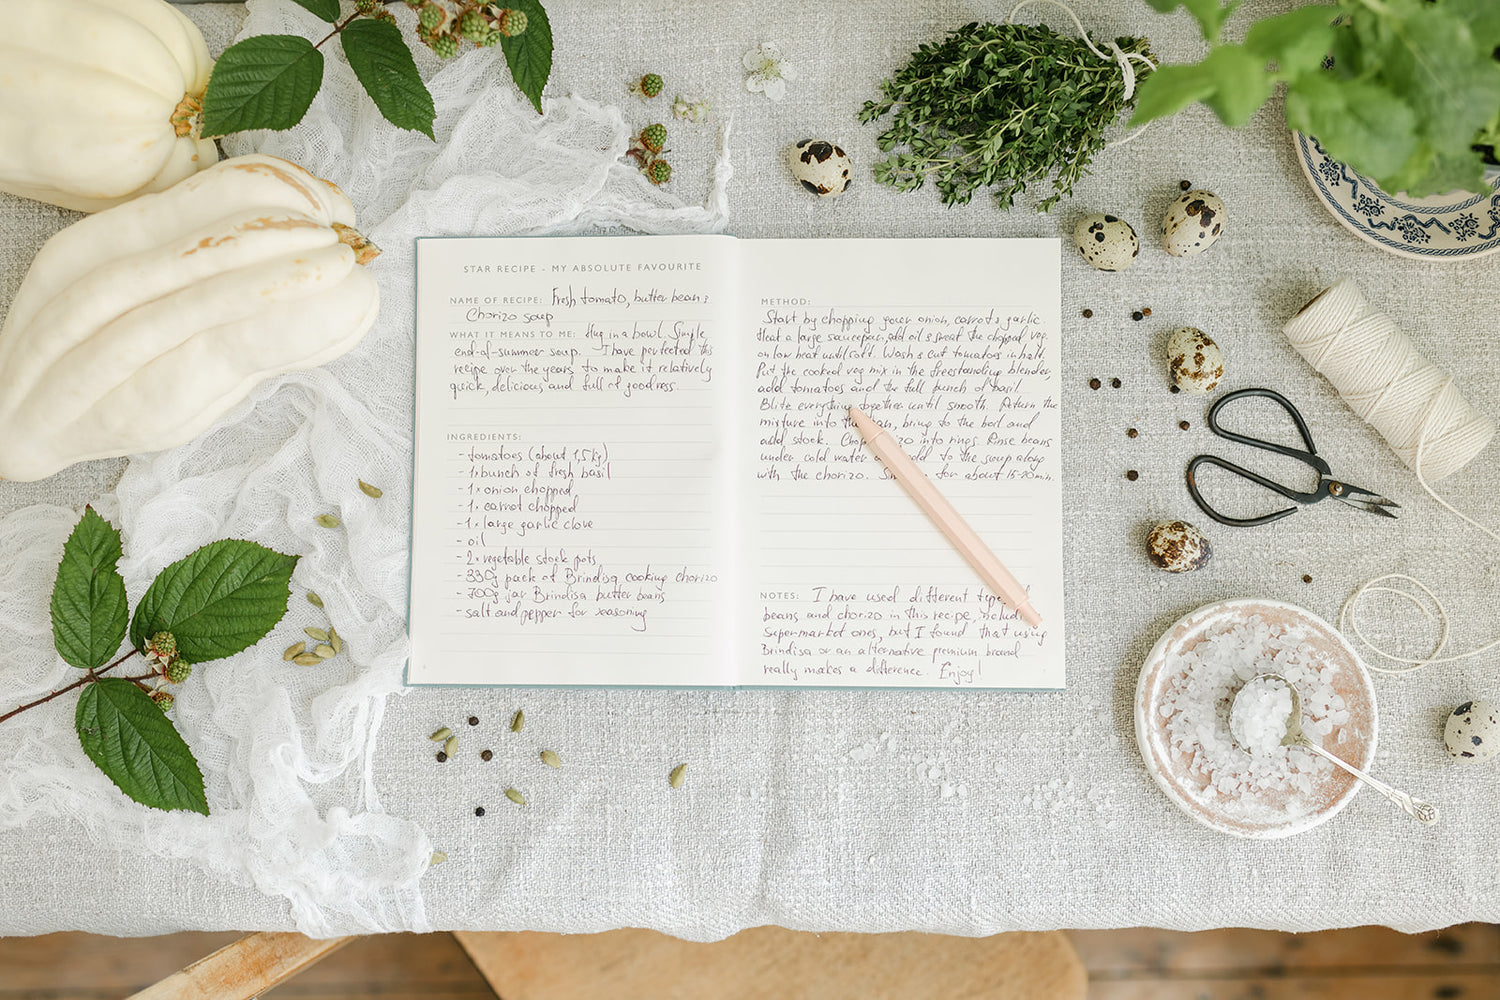 STAR RECIPE - MY ABSOLUTE FAVOURITE
NAME OF RECIPE: Fresh tomato, butter bean &
Chorizo soup
WHAT IT MEANS TO ME: Hug in a bowl. Simple,
end-of-summer soup. I have perfected this
recipe over the years to make it relatively
quick, delicious and full of goodness.
INGREDIENTS:
- tomatoes (about 1,5kg)
- 1x bunch of fresh basil
- 1x onion chopped
- 1x carrot chopped
- 1x large garlic clove
- oil
- 2x vegetable stock pots
- 330g pack of Brindisa cooking chorizo
- 700g jar Brindisa butter beans
- salt and pepper for seasoning
METHOD:
Start by chopping your onion, carrot & garlic.
Heat a large saucepan, add oil & sweat the chopped veg
on low heat until soft. Wash & cut tomatoes in half.
Put the cooked veg mix in the freestanding blender,
add tomatoes and the full bunch of basil.
Blitz everything together until smooth. Return the
mixture into the pan, bring to the boil and
add stock. Chop into rings. Rinse beans
under cold water add to the soup along
with the chorizo. for about 15-20min.
NOTES: I have used different
beans and chorizo in this recipe,
supermarket ones, but I found that using
Brindisa or an alternative premium brand
really makes a difference. Enjoy!